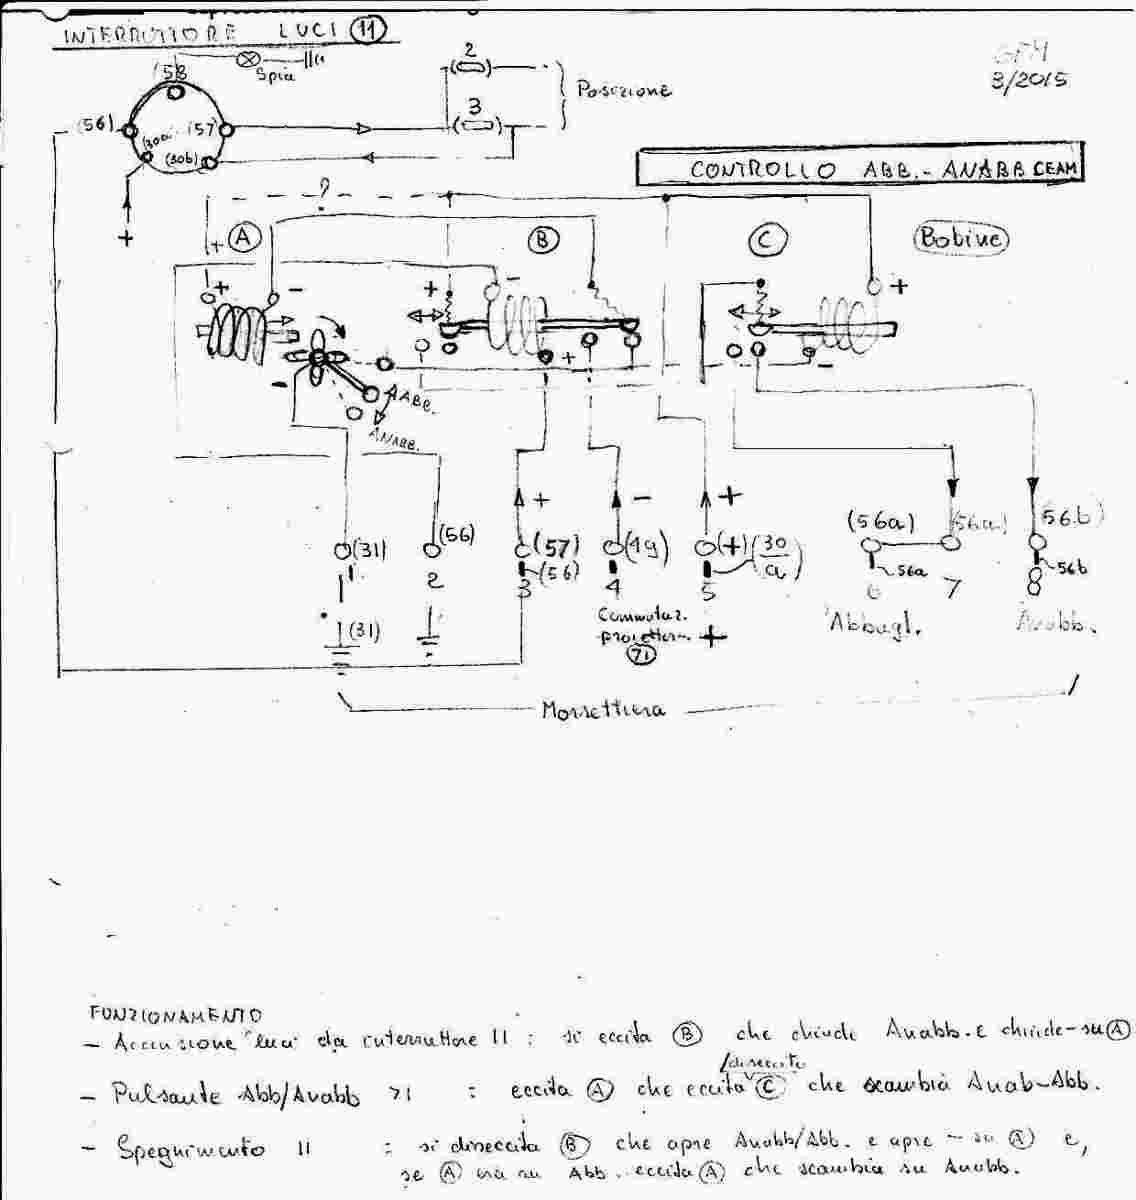 INTERRUTTORE LUCI 11
GFM
3/2015
(58
Spia
2
3
Posizione
(56)
(57)
(30a)
(30b)
+
CONTROLLO ABB.- ANABB CEAM
?
+ A
B
C
Bobine
+ -
+ -
+
-
+
-
AABB.
ANABB.
+ - +
(31) (56) (57) (49) (+) (30/a) (56a) (56a) (56b)
(56) 56a 56b
1 2 3 4 5 6 7 8
(31)
Commutaz.
proiettori
71
+
Abbagl.
Anabb.
Morsettiera
FUNZIONAMENTO
- Accensione luci da interruttore 11 : si eccita B che chiude Anabb. e chiude - su A
/diseccita
- Pulsante Abb/Anabb 71 : eccita A che eccita C che scambia Anab-Abb.
- Spegnimento 11 : si diseccita B che apre Anabb/Abb. e apre - su A e,
se A era su Abb. eccita A che scambia su Anabb.